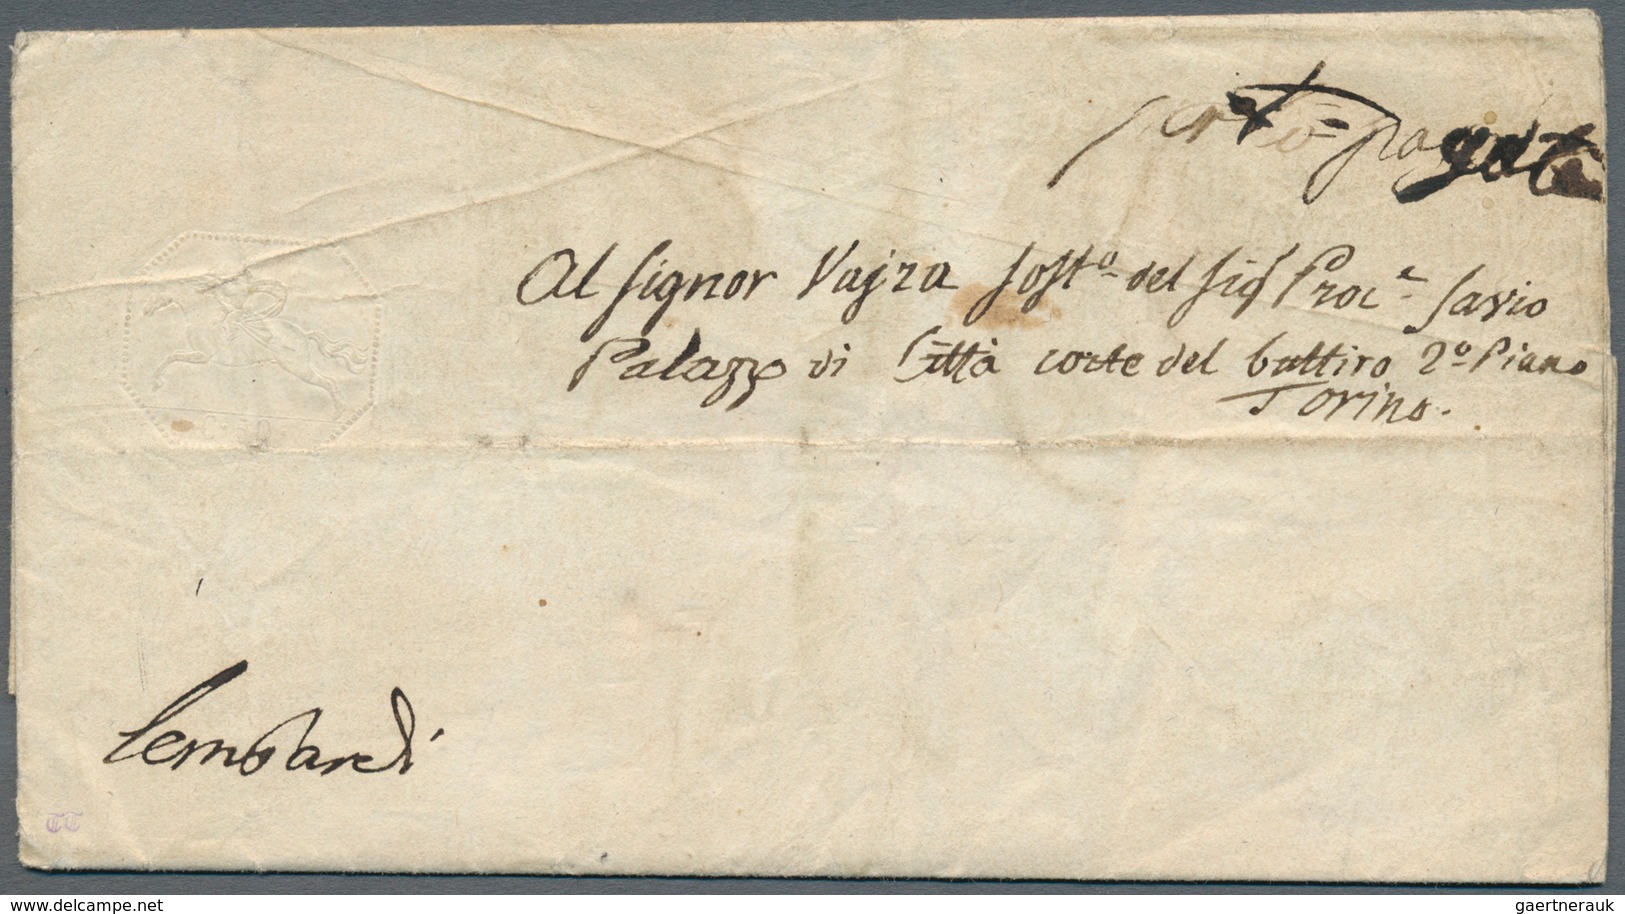 porto pagato
Al Signor Vajra Sost.o del Sig.r Proc.e Savio
Palazzo di Città corte del buttiro 2.o Piano
Torino.
50
Lombardi
TT
delcampe.net
gaertnerauk